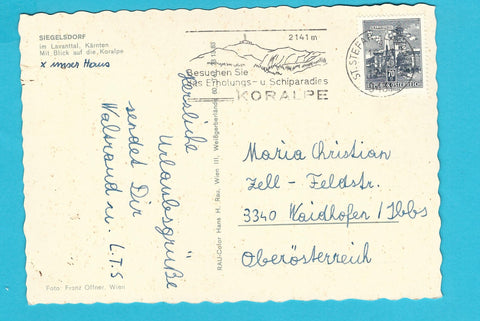 SIEGELSDORF
im Lavanttal, Kärnten
Mit Blick auf die Koralpe
x unser Haus
2141 m
Besuchen Sie
das Erholungs- u Schiparadies
KORALPE
ST. STEFAN
Herzliche
Urlaubsgrüße
sendet Dir
Waltraud u. L.T.S
RAU-Color Hans H. Rau, Wien III, Weißgerberlände
Maria Christian
Zell - Feldstr.
3340 Waidhofen / Ybbs
Oberösterreich
Foto: Franz Offner, Wien